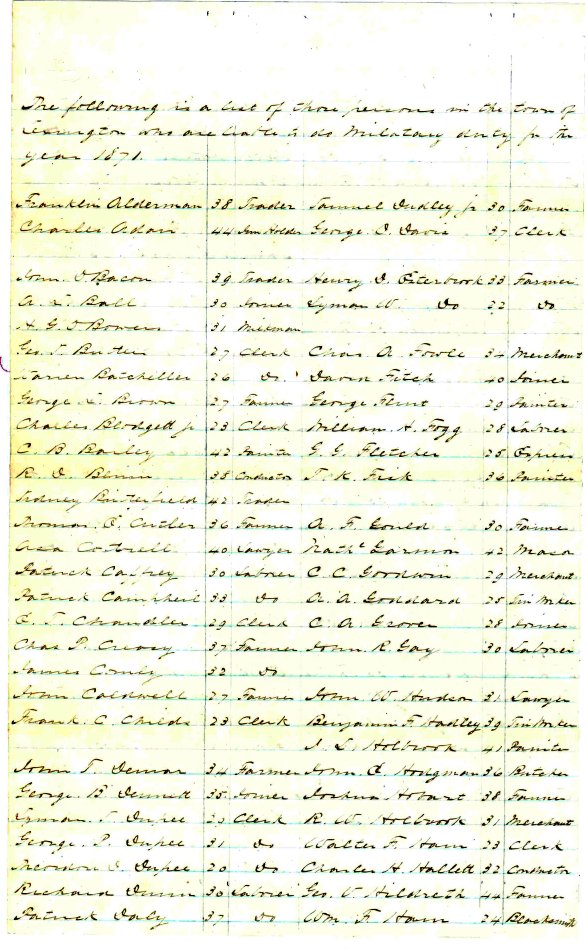 The following is a list of those persons in the town of
Lexington who are liable to do Militatary duty for the
year 1871.
Franklin Alderman 38 Trader Samuel Dudley jr 30 Farmer
Charles Adair 44 George D. Davis 37 Clerk
John Bacon 39 Trader Henry D. Esterbrook 33 Farmer
A. Ball 30 Joiner Lyman W. Do 22 Do
H. G. Bowers 31 Milkman
Geo. Butler 27 Clerk Chas A. Fowle 34 Merchant
Batcheller 26 Do. David Fitch 40 Joiner
George Brown 27 Farmer George Flint 29 Painter
Charles Blodgett jr 23 Clerk William H. Fogg 28 Laborer
C. B. Bailey 42 Painter G. G. Fletcher 25 Express
R. D. 38 Conductor T. K. Fisk 36 Painter
Sidney Butterfield 42 Trader
Thomas Cutler 36 Farmer A. F. Gould 30 Farmer
Asa Cottrell 40 Lawyer Nathl Garmon 42 Mason
Patrick Caffrey 30 Laborer C. C. Goodwin 29 Merchant
Patrick Campbell 33 Do A. A. Goddard 25 Tin Worker
Chandler 29 Clerk C. A. Grover 28 Joiner
Chas P. Creasy 37 Farmer John R. Gay 30 Laborer
James 32 Do
John Caldwell 27 Farmer John W. Hudson 31 Lawyer
Frank. C. Childs 23 Clerk Benjamin F. Hadley 39 Tin Worker
Holbrook 41 Painter
John T. Demar 34 Farmer John Hodgman 36 Butcher
George B Dennett 35 Joiner Joshua Hobart 38 Farmer
Lyman Dupee 25 Clerk R. W. Holbrook 31 Merchant
George. P. Dupee 31 Do Walter F. Ham 23 Clerk
Dupee 20 Do Charles H. Hallett 32 Conductor
Richard 30 Laborer Geo. V. Hildreth 44 Farmer
Patrick Daly 37 Do Wm. F. Ham 24 Blacksmith